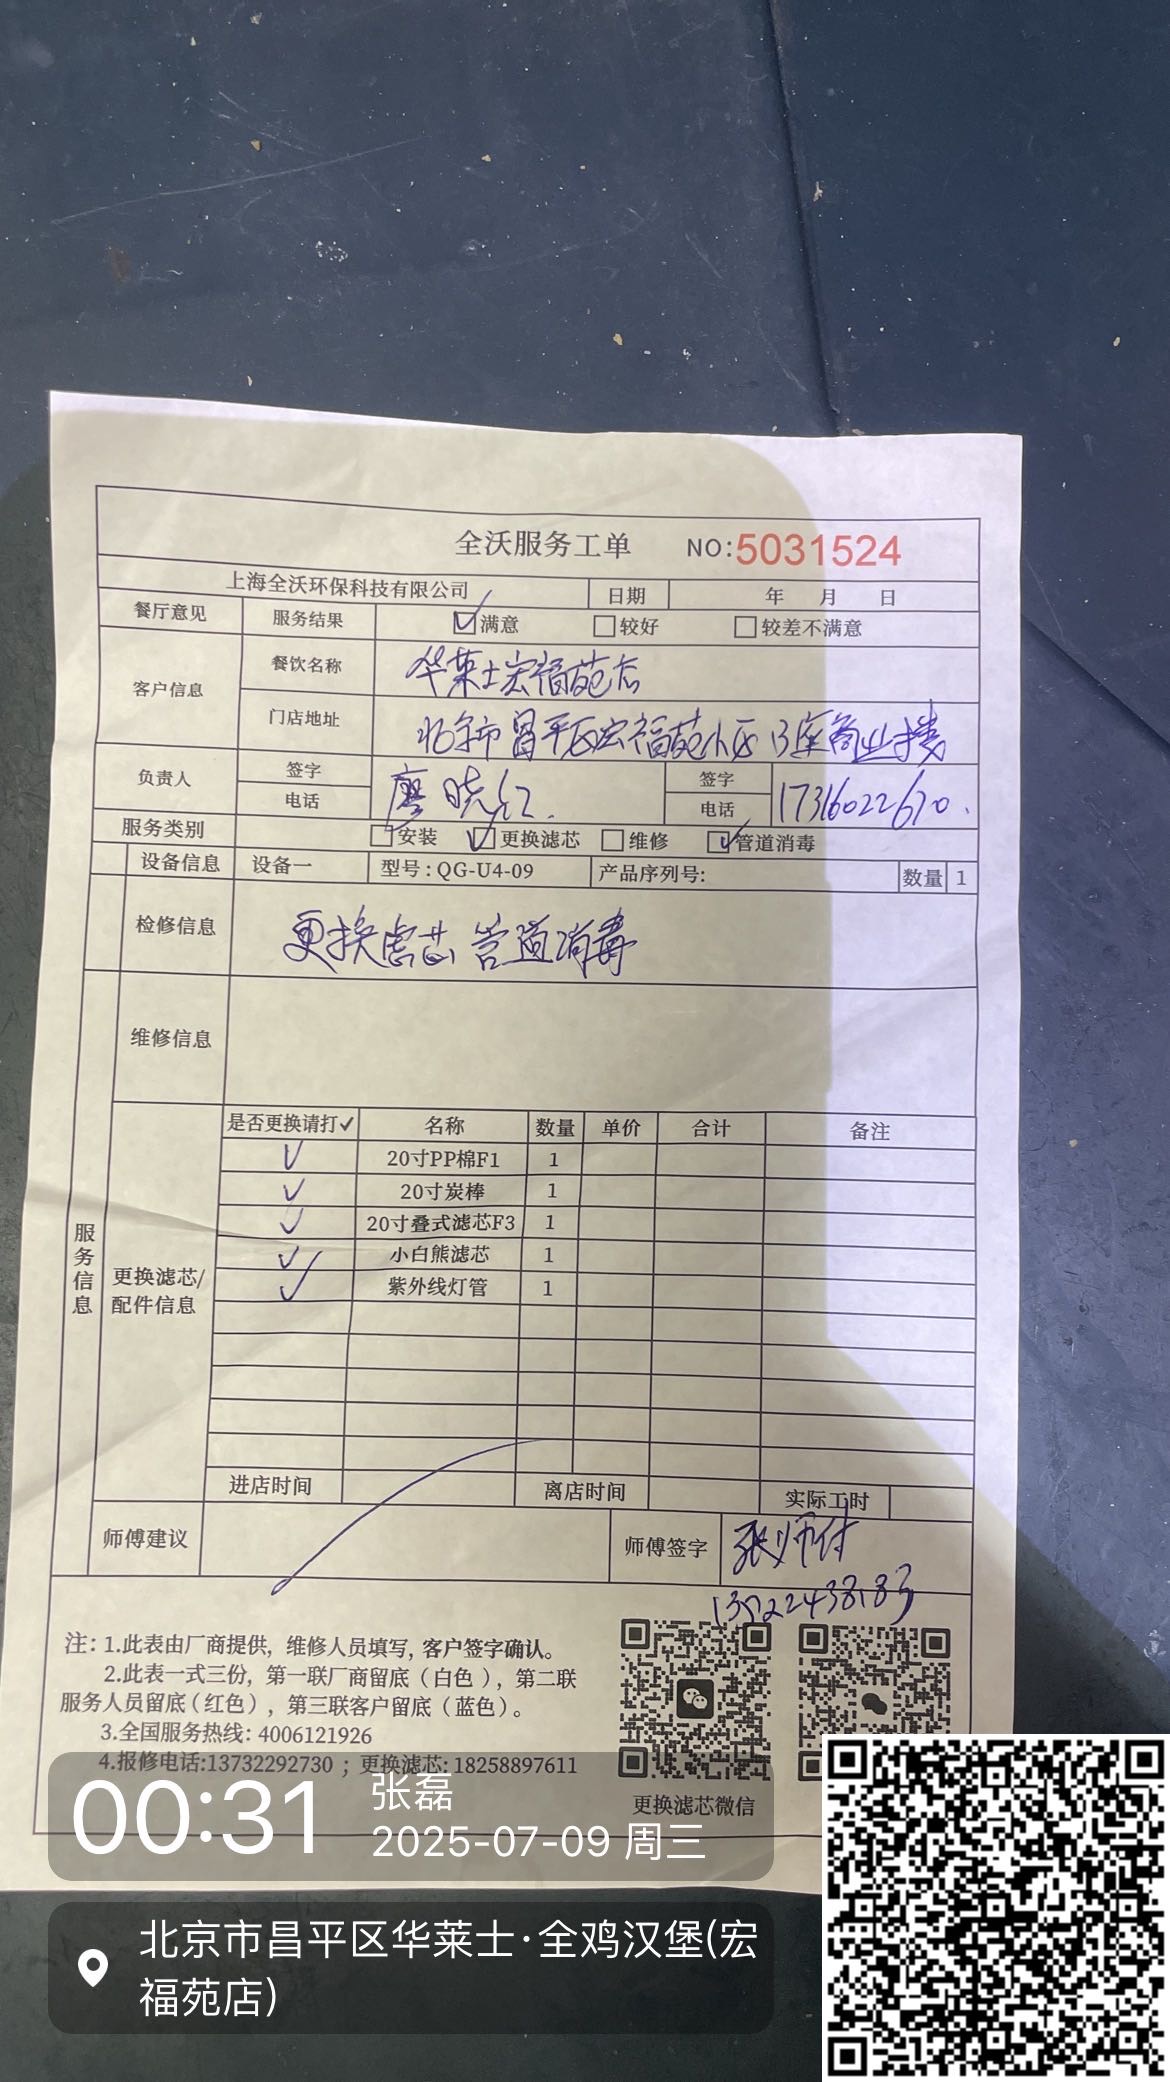 全沃服务工单 NO:5031524
上海全沃环保科技有限公司 日期 年 月 日
餐厅意见 服务结果 满意 较好 较差不满意
客户信息 餐饮名称 华莱士宏福苑店
门店地址 北京市昌平区宏福苑小区13座商业楼
负责人 签字 电话 廖晓红. 签字 电话 17316022670.
服务类别 安装 更换滤芯 维修 管道消毒
设备信息 设备一 型号:QG-U4-09 产品序列号: 数量 1
检修信息 更换虑芯 管道消毒
维修信息
服务信息
更换滤芯/
配件信息
是否更换请打✓ 名称 数量 单价 合计 备注
✓ 20寸PP棉F1 1
✓ 20寸炭棒 1
✓ 20寸叠式滤芯F3 1
✓ 小白熊滤芯 1
✓ 紫外线灯管 1
进店时间 离店时间 实际工时
师傅建议 师傅签字 张师付
注: 1.此表由厂商提供, 维修人员填写, 客户签字确认。
2.此表一式三份, 第一联厂商留底 ( 白色 ), 第二联
服务人员留底 ( 红色 ) , 第三联客户留底 ( 蓝色 ) 。
3.全国服务热线: 4006121926
4.报修电话:13732292730 ; 更换滤芯: 18258897611
更换滤芯微信
00:31
张磊
2025-07-09 周三
北京市昌平区华莱士·全鸡汉堡(宏
福苑店)